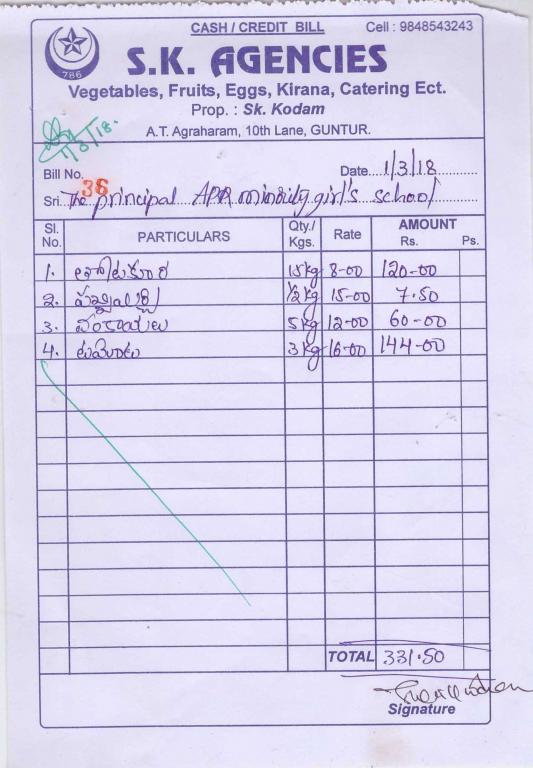 CASH / CREDIT BILL Cell : 9848543243
786
S.K. AGENCIES
Vegetables, Fruits, Eggs, Kirana, Catering Ect.
Prop. : Sk. Kodam
A.T. Agraharam, 10th Lane, GUNTUR.
1/3/18.
Bill No. 36 Date 1/3/18
Sri The principal APR minority girl's school
Sl. No. PARTICULARS Qty./ Kgs. Rate AMOUNT Rs. Ps.
1. 15kg 8-00 120-00
2. 1/2 kg 15-00 7.50
3. వంకాయలు 5kg 12-00 60-00
4. టమోటా 3kg 16-00 144-00
TOTAL 331.50
Signature